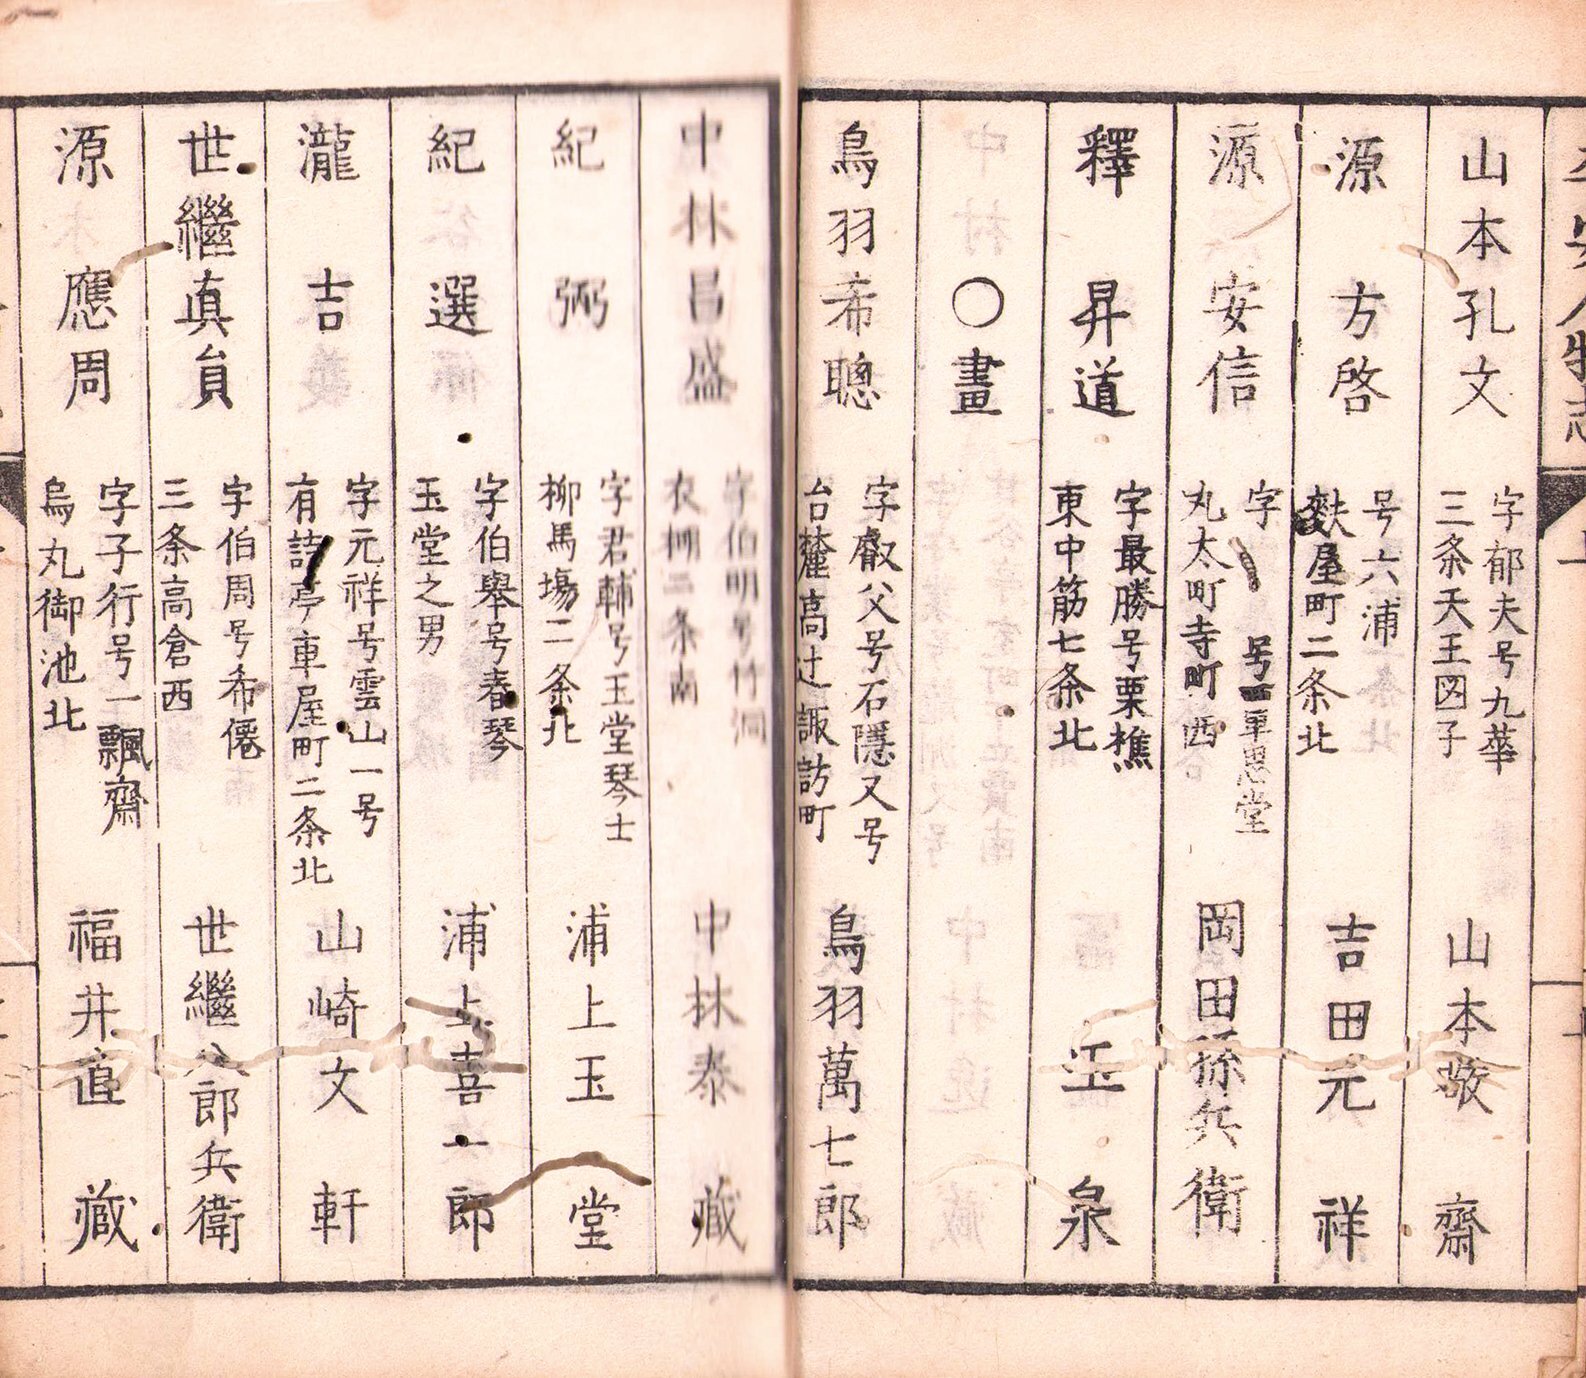 山本孔文 字郁夫号九華 三条天王図子 山本敬齋
源方啓 号六浦 麩屋町二条北 吉田元祥
源安信 字 号 思堂 丸太町寺町西 岡田孫兵衛
釋昇道 字最勝号栗樵 東中筋七条北 正泉
〇畫
鳥羽希聰 字叡父号石隱又号 台麓高辻諏訪町 鳥羽萬七郎
中林昌盛 字伯明号竹洞 衣棚二条南 中林泰藏
紀弼 字君輔号玉堂琴士 柳馬場二条北 浦上玉堂
紀選 字伯舉号春琴 玉堂之男 浦上喜一郎
瀧吉 字元祥号雲山一号 有詩亭車屋町二条北 山崎文軒
世繼真員 字伯周号希僊 三条高倉西 世繼八郎兵衛
源應周 字子行号一瓢齋 烏丸御池北 福井直藏